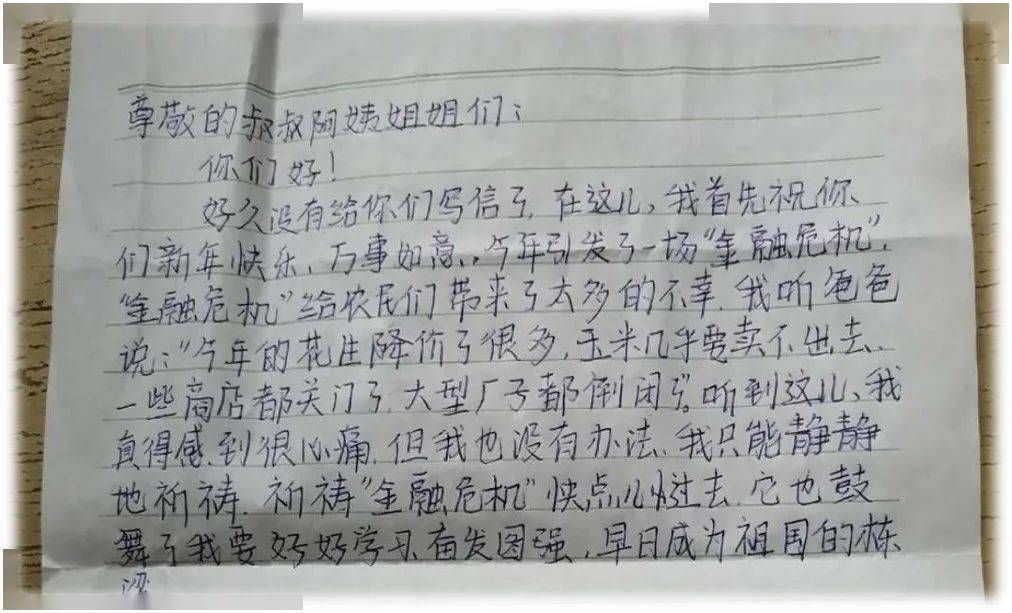 尊敬的叔叔阿姨姐姐们：
你们好！
好久没有给你们写信了，在这儿，我首先祝你
们新年快乐、万事如意，今年引发了一场“金融危机”，
“金融危机”给农民们带来了太多的不幸，我听爸爸
说：“今年的花生降价了很多，玉米几乎要卖不出去、
一些商店都关门了，大型厂子都倒闭了”，听到这儿、我
真得感到很心痛，但我也没有办法、我只能静静
地祈祷，祈祷“金融危机”快点儿过去，它也鼓
舞了我要好好学习、奋发图强，早日成为祖国的栋
梁